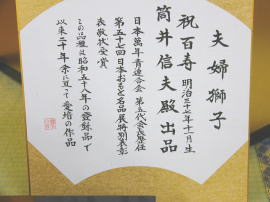 夫婦獅子
祝百寿 明治三十七年十一月生
筒井信夫殿出品
日本萬年青連合会 第五代会長歴任
第五十七回日本おもと名品展特別表彰
表敬状受賞
この品種は昭和五十八年の登録品で
以来二十年余に亘って愛培の作品